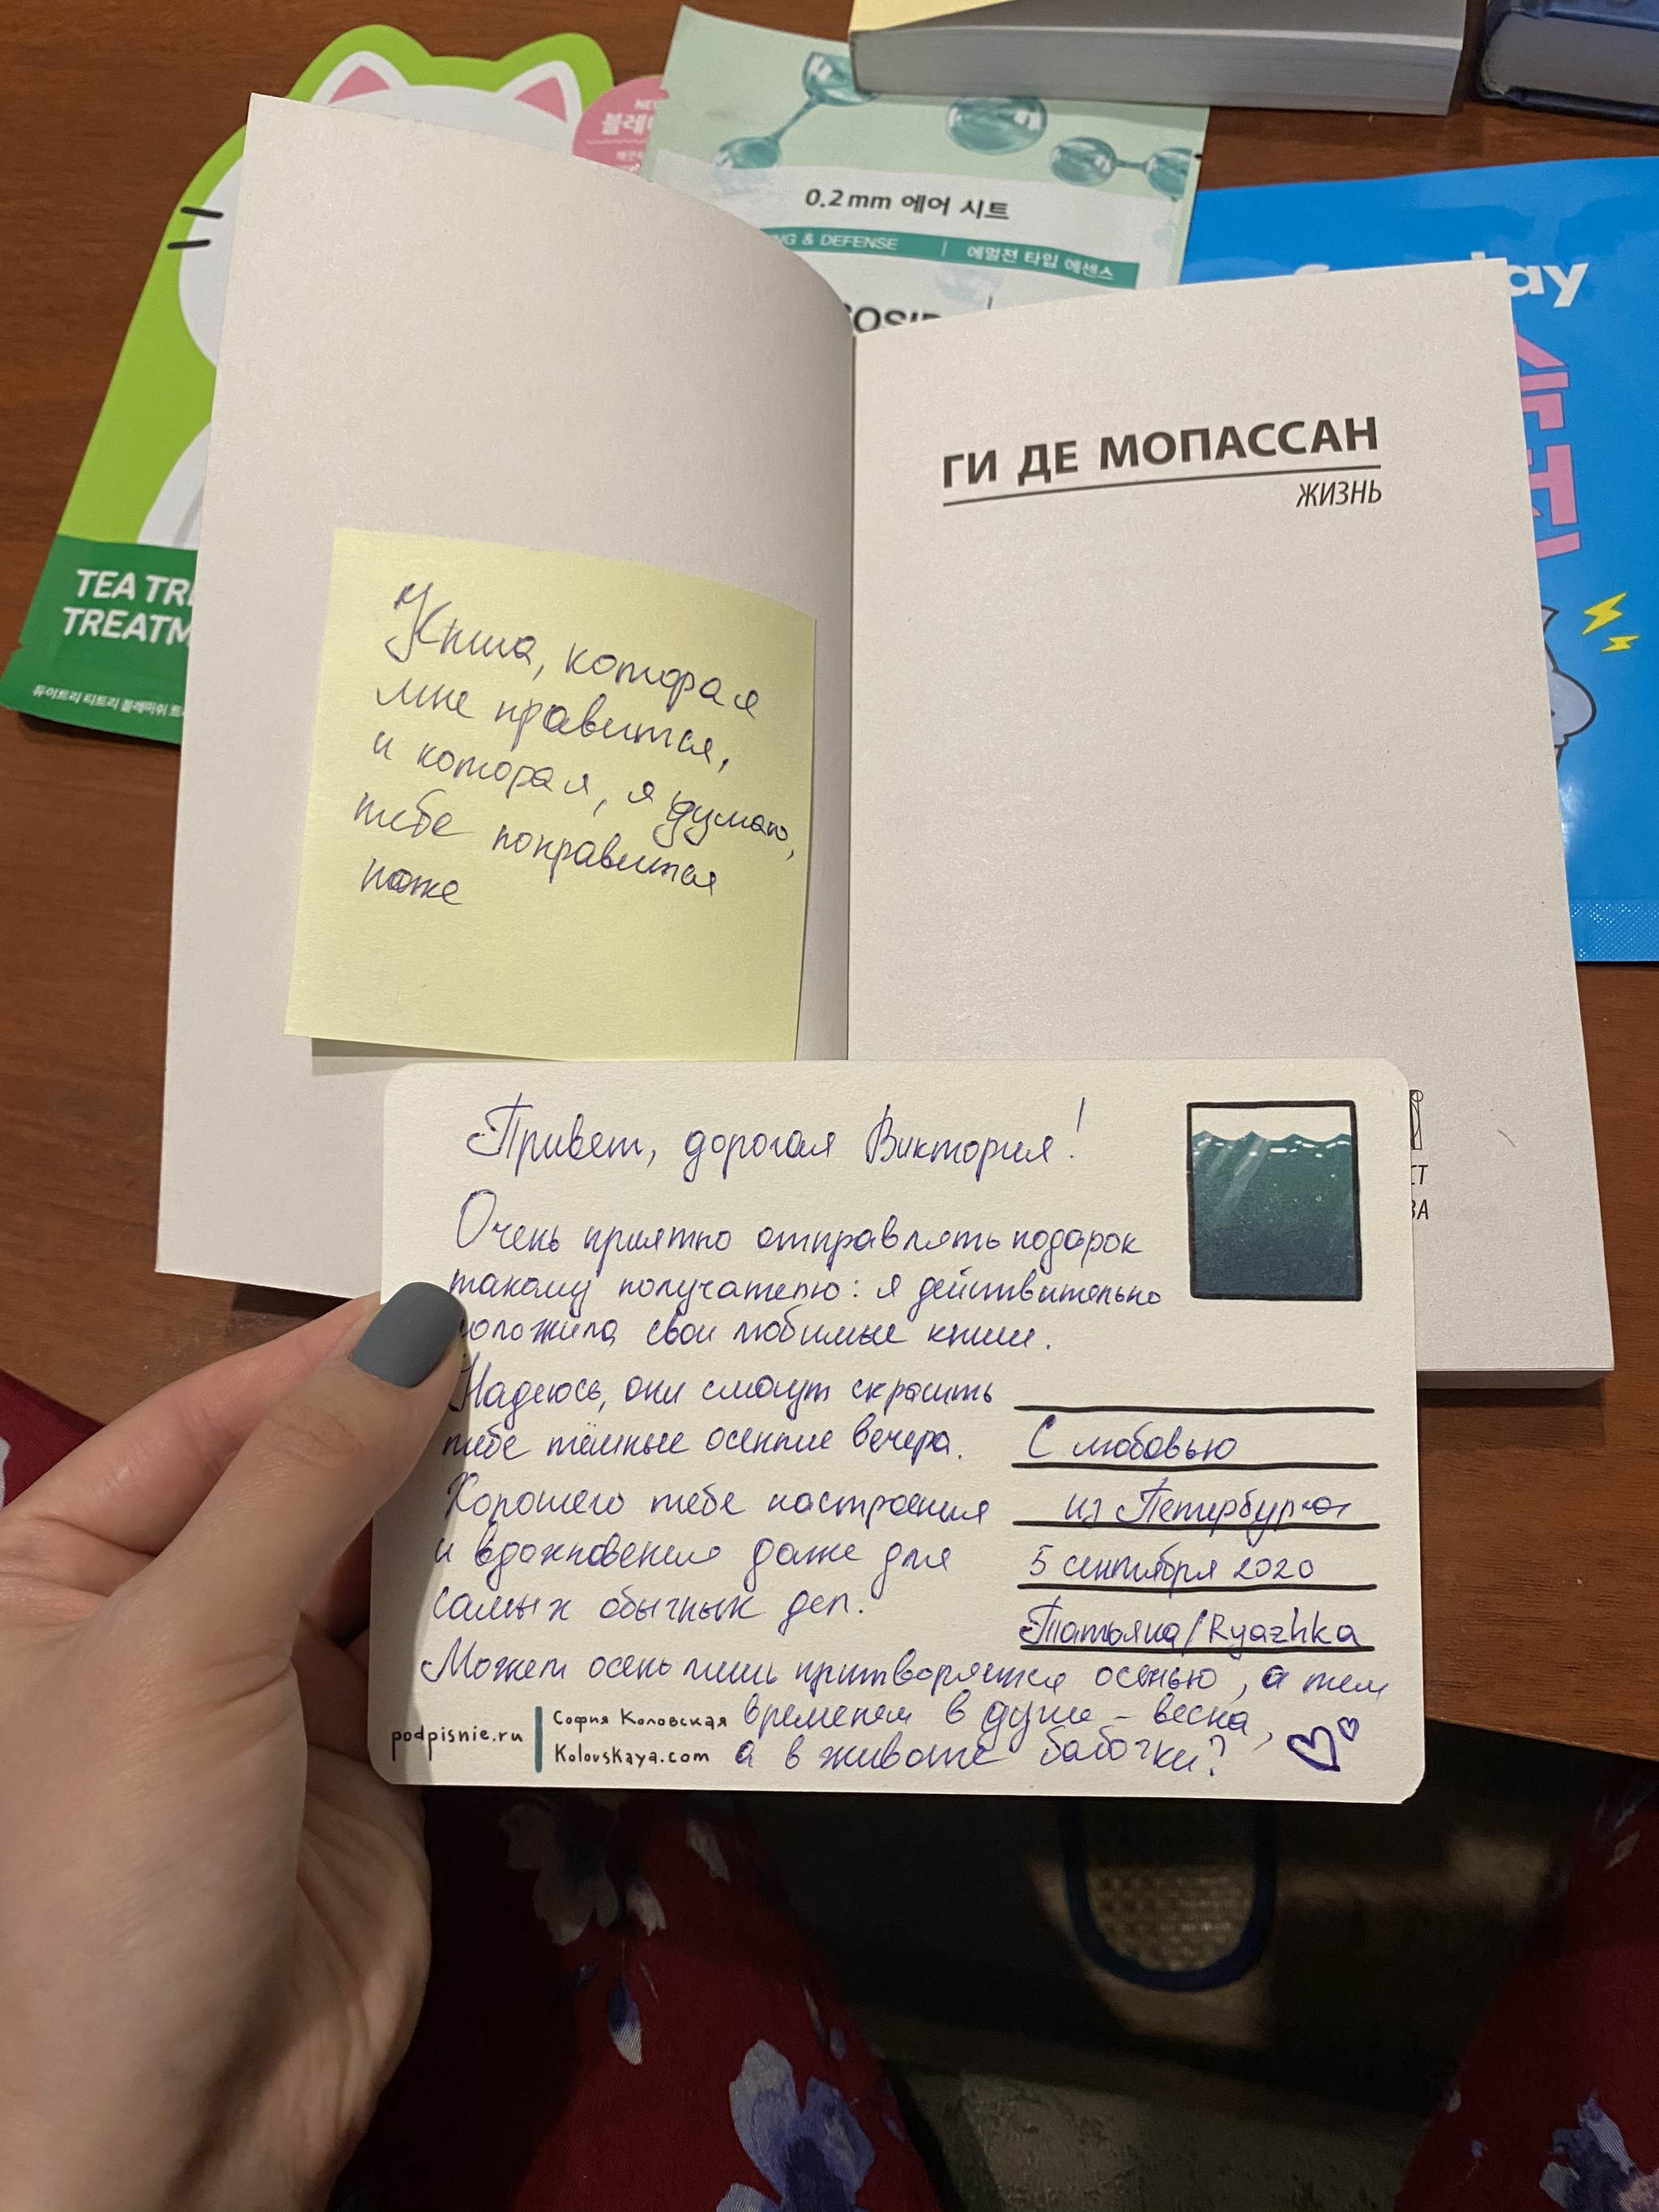 NEW
블레미
0.2mm 에어 시트
& DEFENSE | 에멀전 타입 에센스
TEA TR
TREATM
듀이트리 티트리 블레미쉬 트
ay
ГИ ДЕ МОПАССАН
ЖИЗНЬ
Книга, которая
мне нравится,
и которая, я думаю,
тебе понравится
тоже
Привет, дорогая Виктория!
Очень приятно отправлять подарок
такому получателю: я действительно
положила свои любимые книги.
Надеюсь, они смогут скрасить
тебе тёмные осенние вечера.
Хорошего тебе настроения
и вдохновения даже для
самых обычных дел.
Может осень лишь притворяется осенью, а тем
временем в душе – весна,
а в животе бабочки?
С любовью
из Петербурга
5 сентября 2020
Татьяна/Ryazhka
podpisnie.ru
София Коловская
Kolovskaya.com